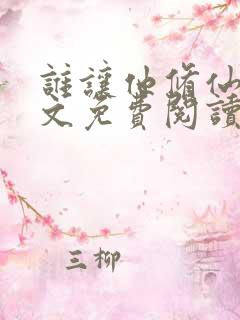 誰讓他修仙
文免費閱讀
三柳